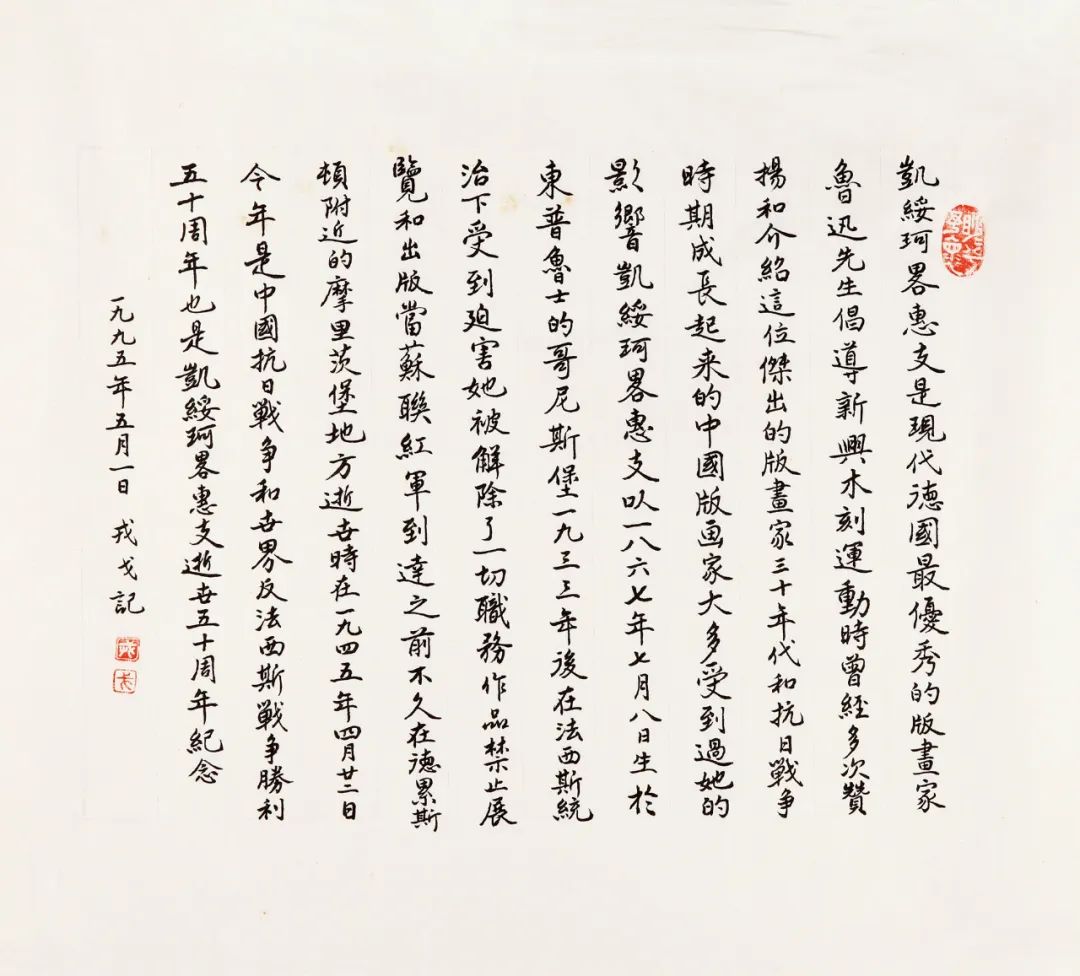 凱綏珂畧惠支是現代德國最優秀的版畫家
魯迅先生倡導新興木刻運動時曾經多次贊
揚和介紹這位傑出的版畫家三十年代和抗日戰争
時期成長起来的中國版画家大多受到過她的
影響凱綏珂畧惠支以一八六七年七月八日生於
東普魯士的哥尼斯堡一九三三年後在法西斯統
治下受到迫害她被解除了一切職務作品禁止展
覽和出版當蘇聯紅軍到達之前不久在德累斯
頓附近的摩里茨堡地方逝世時在一九四五年四月廿二日
今年是中國抗日戰争和世界反法西斯戰争勝利
五十周年也是凱綏珂畧惠支逝世五十周年紀念
一九九五年五月一日 戎戈記
戎
戈